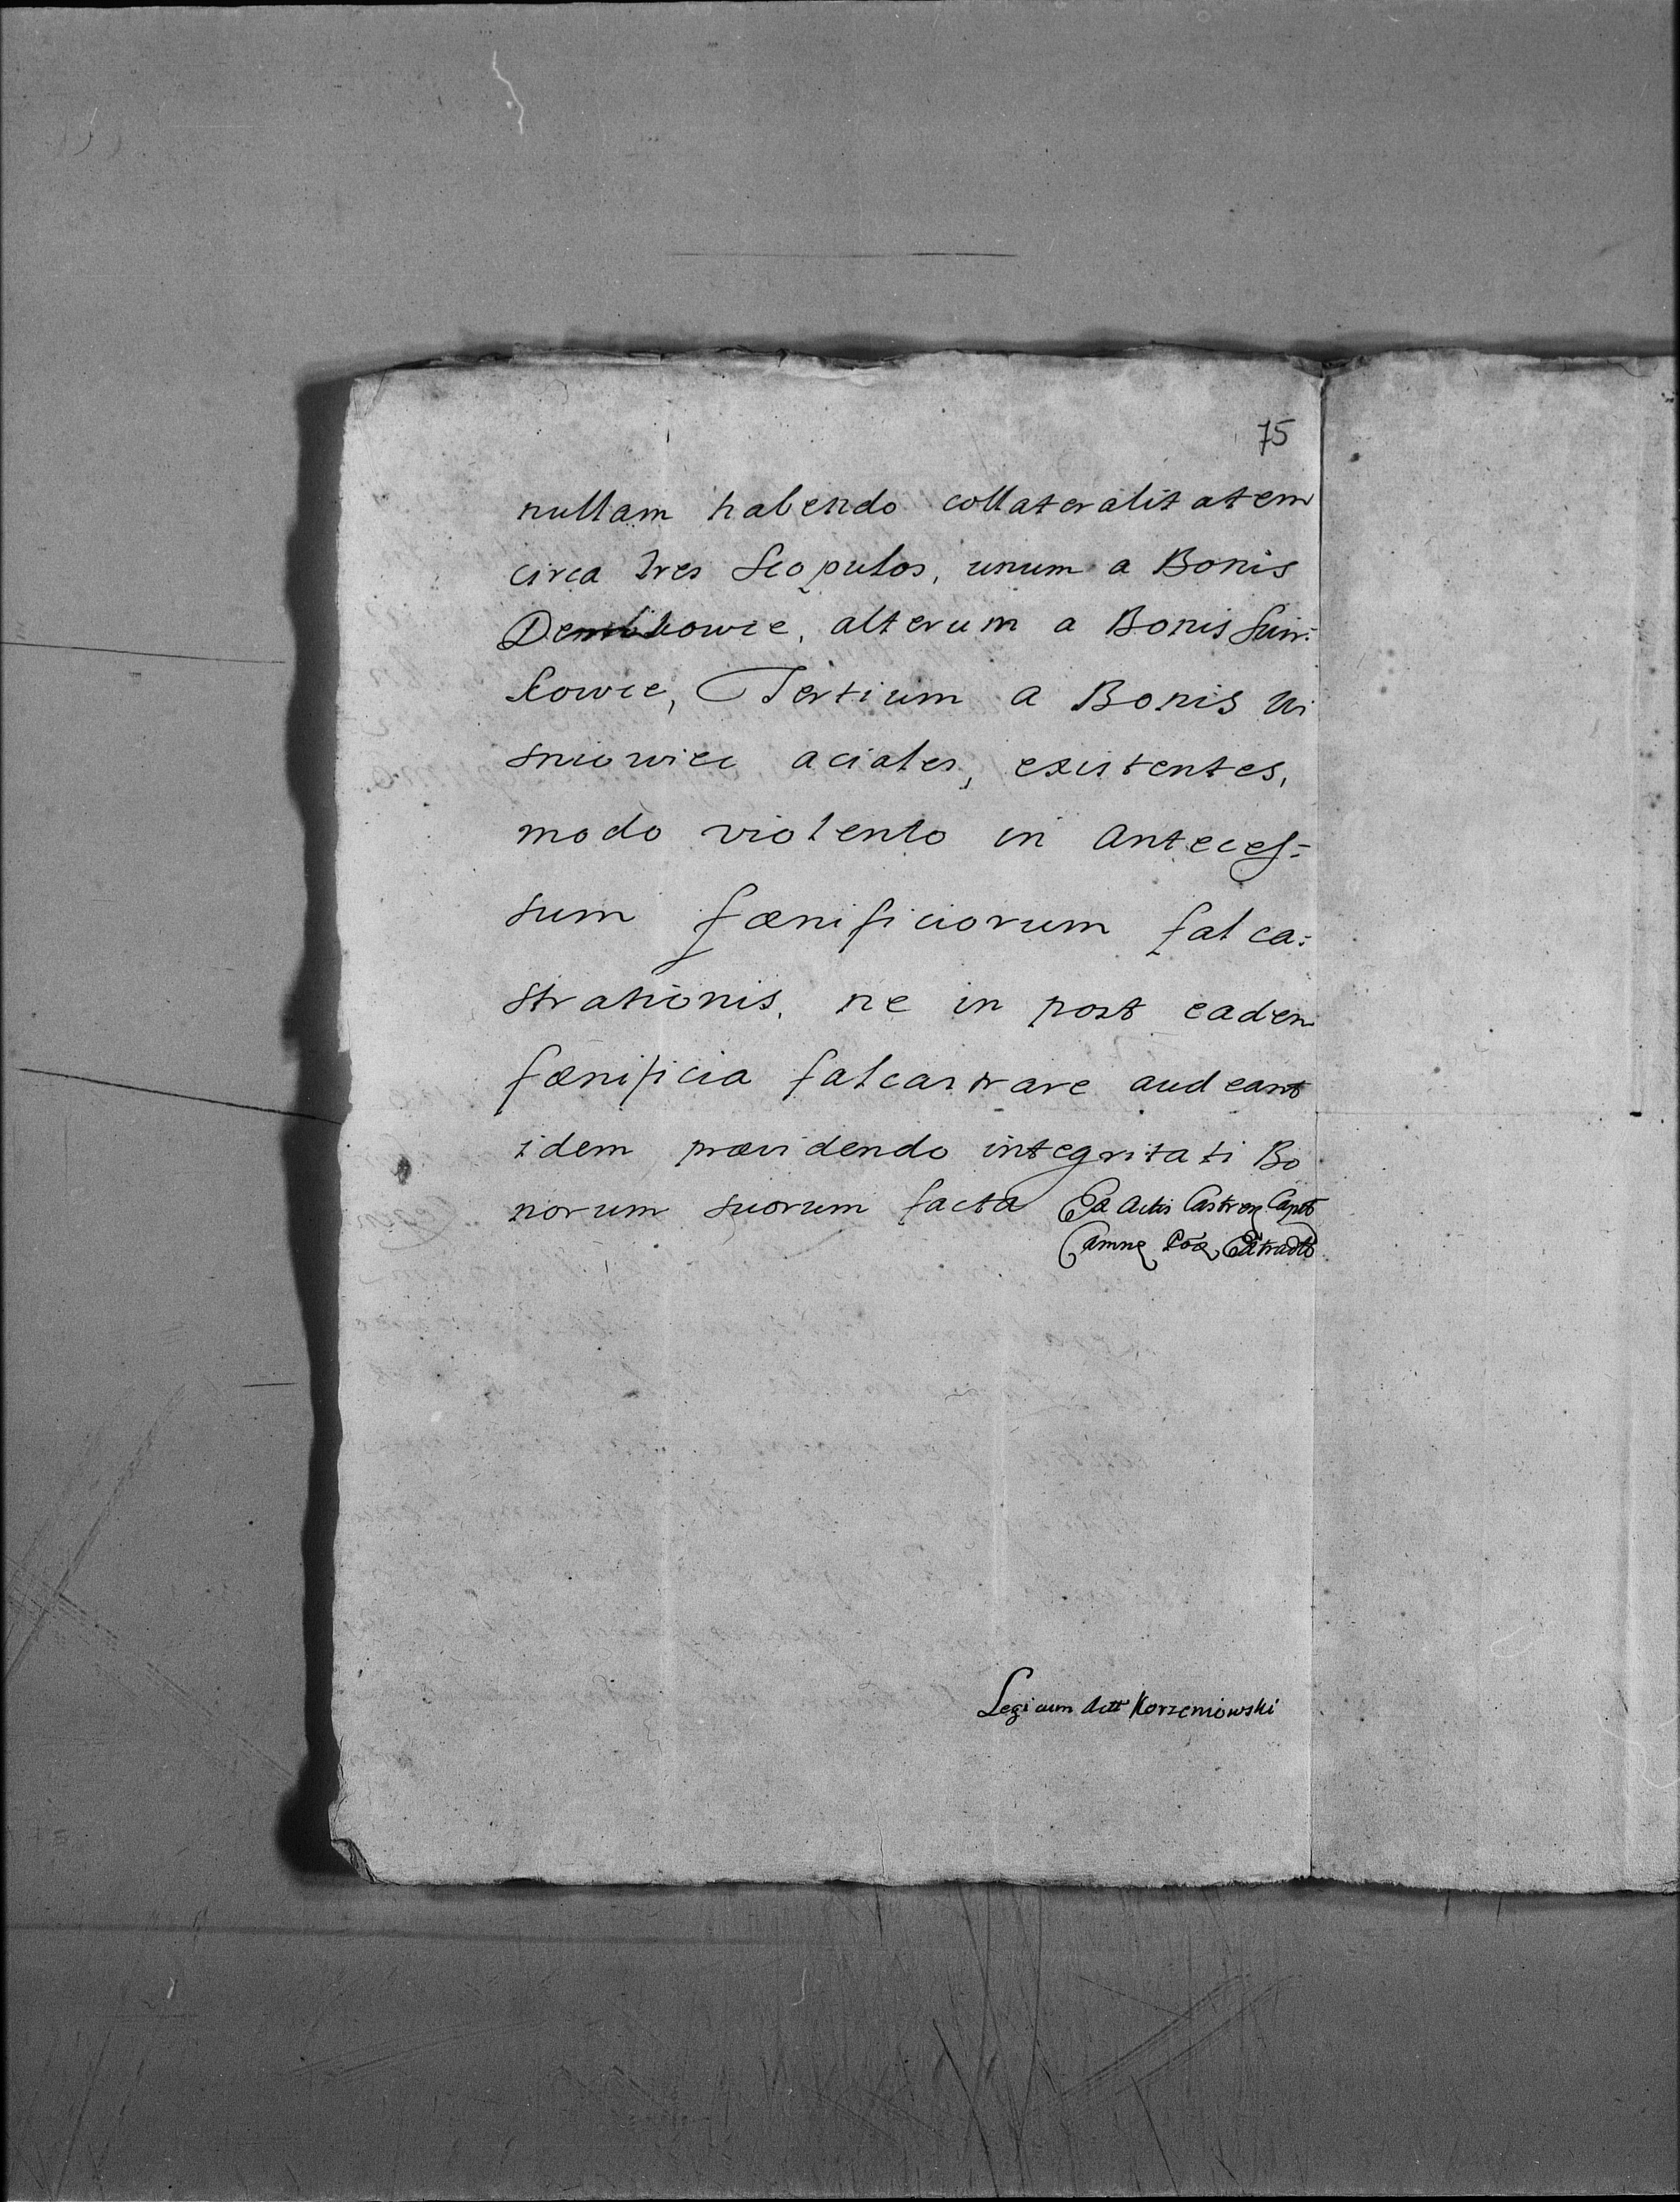 75
nullam habendo collateralitatem
circa tres Scopulos, unum a Bonis
alterum a Bonis Sun-
kowce, Tertium a Bonis Wi
sniowiec aciales, existentes,
modo violento in anteces-
sum fænificiorum falca-
strationis, ne in post eadem
fænificia falcastrare audeant
idem prævidendo integritati Bo
norum suorum facta Ex Actis Castren Capit
Camne Pod Extradit
Legi cum Actt Korzeniowski